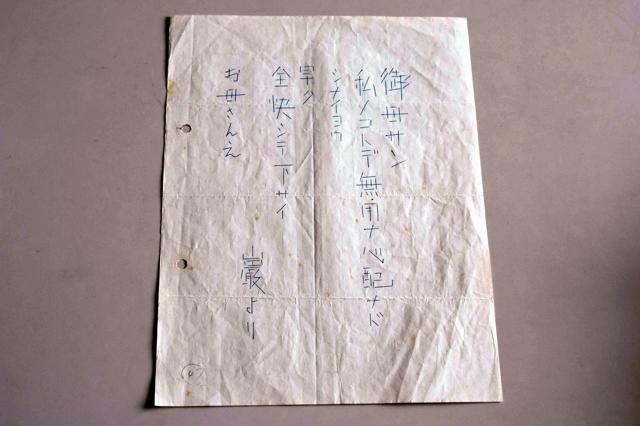 御母サン
私ノコトデ無用ナ心配ナド
シナイヨウ
早ク
全快シテ下サイ
お母さんえ
巌より